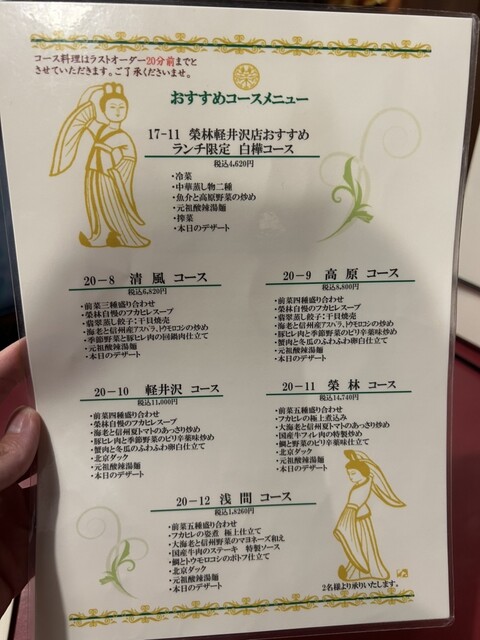 コース料理はラストオーダー20分前までと
させていただきます。ご了承くださいませ。
榮
おすすめコースメニュー
17-11 榮林軽井沢店おすすめ
ランチ限定 白樺コース
税込4,620円
・冷菜
・中華蒸し物二種
・魚介と高原野菜の炒め
・元祖酸辣湯麺
・搾菜
・本日のデザート
20-8 清風 コース
税込6,820円
・前菜三種盛り合わせ
・榮林自慢のフカヒレスープ
・翡翠蒸し餃子:干貝焼売
・海老と信州産アスパラ、トウモロコシの炒め
・季節野菜と豚ヒレ肉の回鍋肉仕立て
・元祖酸辣湯麺
・本日のデザート
20-9 高原 コース
税込8,800円
・前菜四種盛り合わせ
・榮林自慢のフカヒレスープ
・翡翠蒸し餃子:干貝焼売
・海老と信州産アスパラ、トウモロコシの炒め
・豚ヒレ肉と季節野菜のピリ辛薬味炒め
・蟹肉と冬瓜のふわふわ卵白仕立て
・元祖酸辣湯麺
・本日のデザート
20-10 軽井沢 コース
税込11,000円
・前菜四種盛り合わせ
・榮林自慢のフカヒレスープ
・海老と信州夏トマトのあっさり炒め
・豚ヒレ肉と季節野菜のピリ辛薬味炒め
・蟹肉と冬瓜のふわふわ卵白仕立て
・北京ダック
・元祖酸辣湯麺
・本日のデザート
20-11 榮林 コース
税込14,740円
・前菜五種盛り合わせ
・フカヒレの極上煮込み
・大海老と信州夏トマトのあっさり炒め
・国産牛フィレ肉の特製炒め
・鯛と野菜のピリ辛薬味仕立て
・北京ダック
・元祖酸辣湯麺
・本日のデザート
20-12 浅間 コース
税込1,8260円
・前菜五種盛り合わせ
・フカヒレの姿煮 極上仕立て
・大海老と信州野菜のマヨネーズ和え
・国産牛肉のステーキ 特製ソース
・鯛とトウモロコシのポトフ仕立て
・北京ダック
・元祖酸辣湯麺
・本日のデザート
2名様より承りいたします。